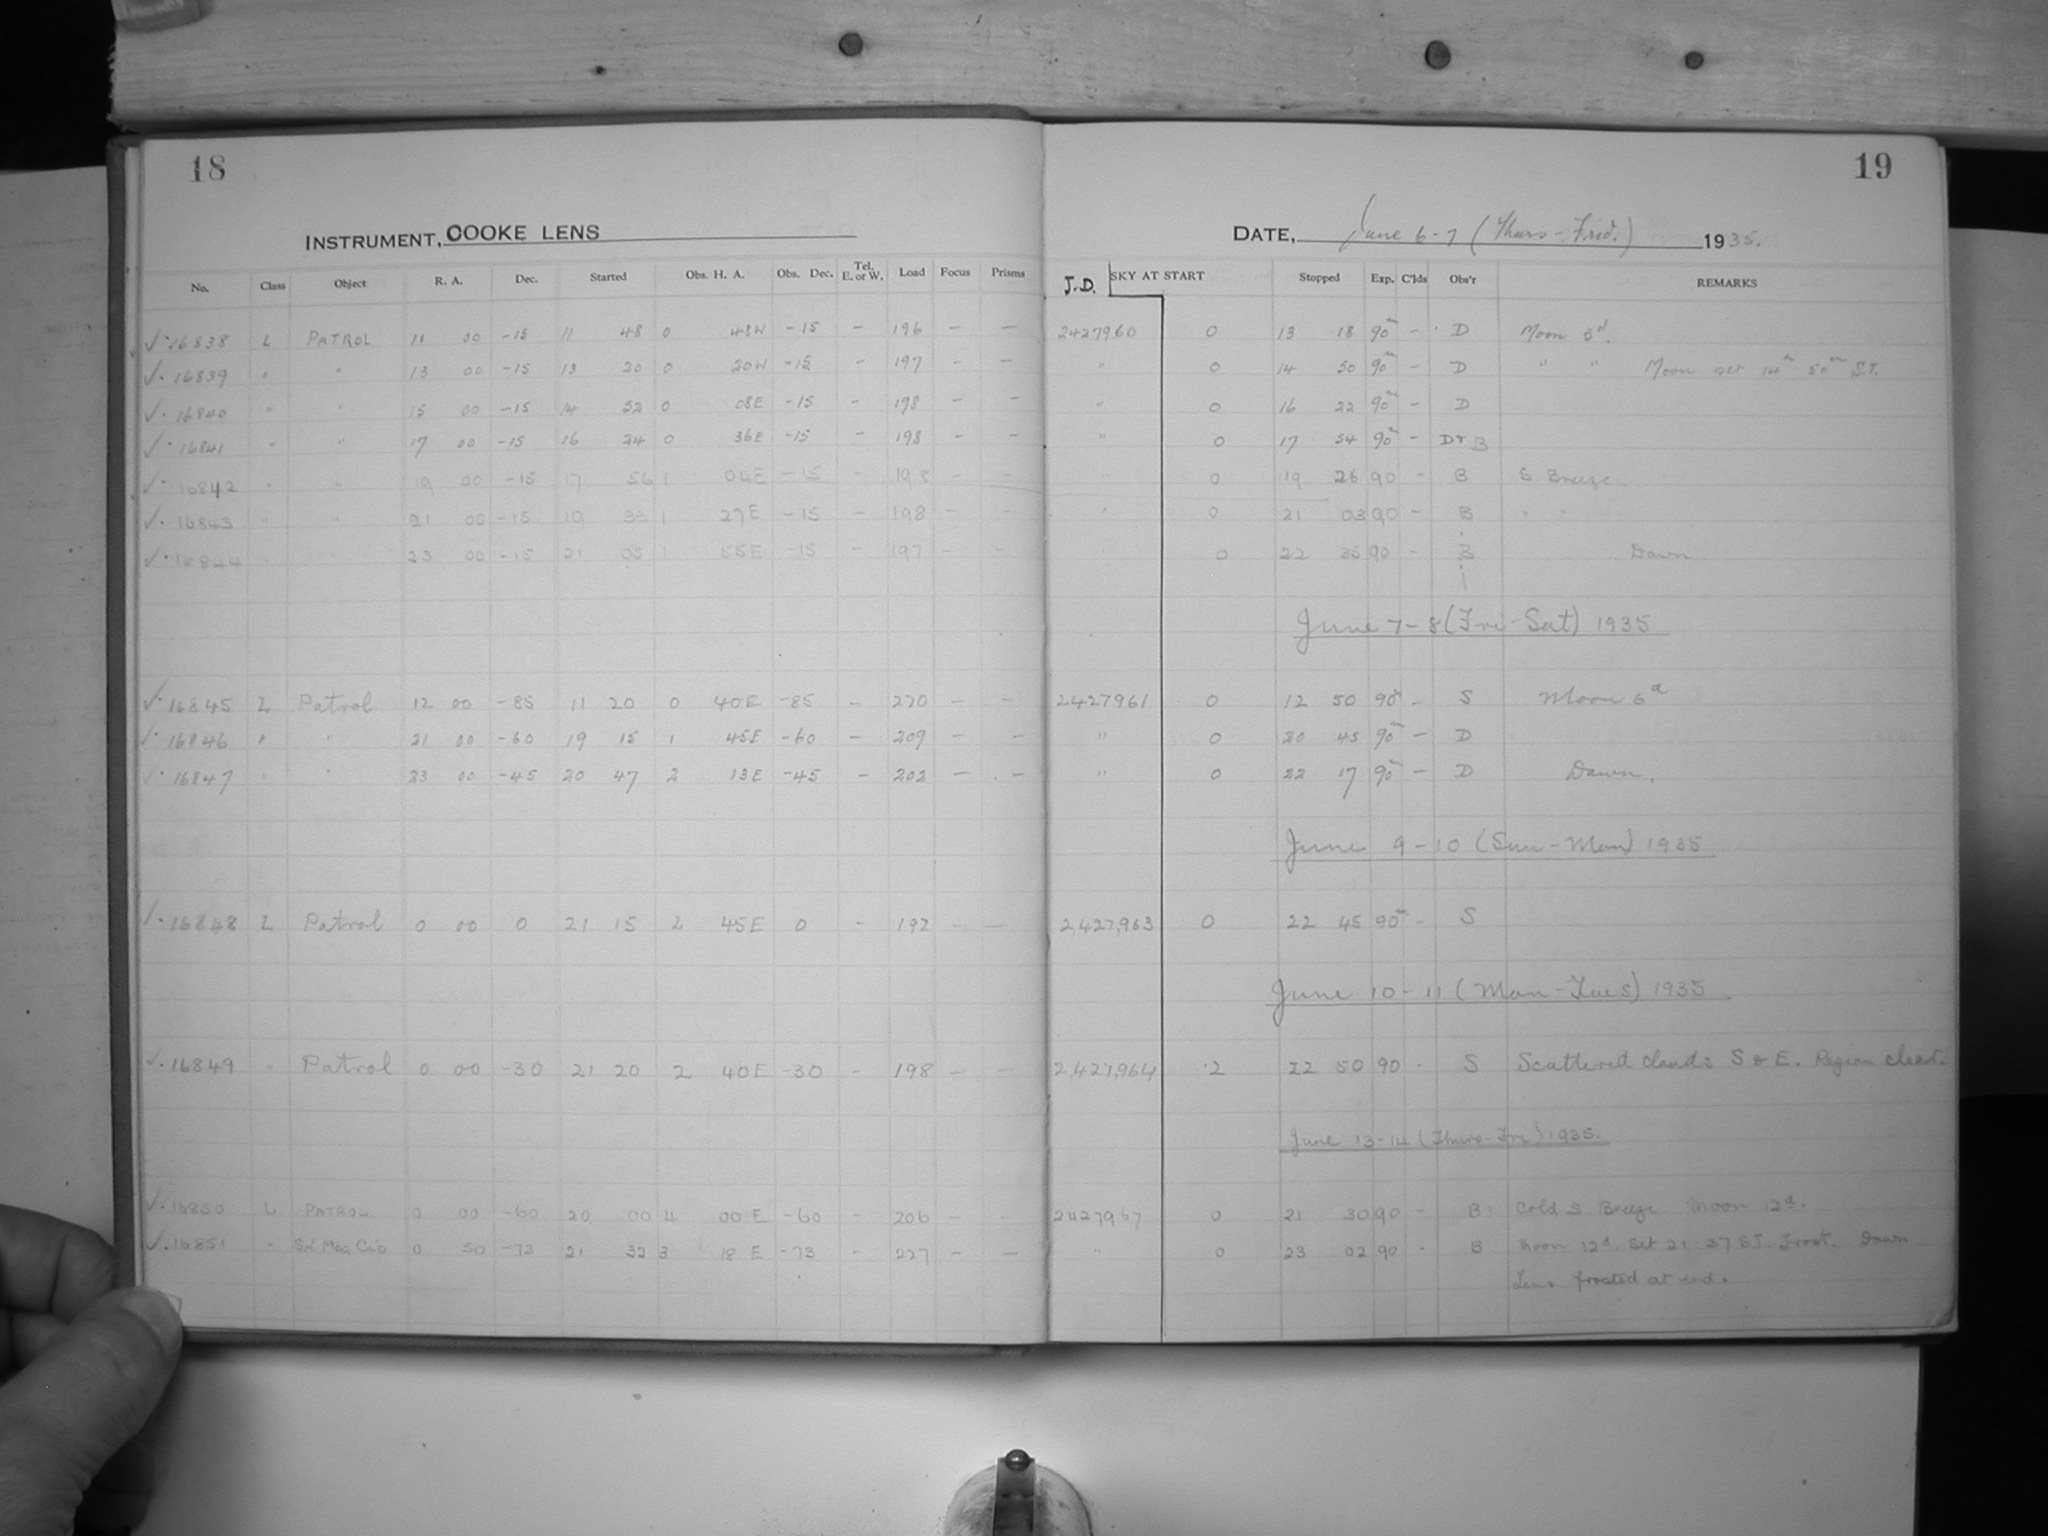 18
INSTRUMENT, COOKE LENS
No. Class Object R. A. Dec. Started Obs. H. A. Obs. Dec. Tel. E. or W. Load Focus Prisms
✓ 16838 L PATROL 11 00 -15 11 48 0 48W -15 - 196 - -
✓ 16839 " " 13 00 -15 13 20 0 20W -15 - 197 - -
✓ 16840 " " 15 00 -15 14 52 0 08E -15 - 198 - -
✓ 16841 " " 17 00 -15 16 24 0 36E -15 - 198 - -
✓ 16842 " " 19 00 -15 17 56 1 04E -15 - 198 - -
✓ 16843 " " 21 00 -15 19 33 1 27E -15 - 198 - -
✓ 16844 " " 23 00 -15 21 05 1 55E -15 - 197 - -
✓ 16845 L Patrol 12 00 -85 11 20 0 40E -85 - 270 - -
✓ 16846 " " 21 00 -60 19 15 1 45E -60 - 209 - -
✓ 16847 " " 23 00 -45 20 47 2 13E -45 - 202 - -
✓ 16848 L Patrol 0 00 0 21 15 2 45E 0 - 192 - -
✓ 16849 " Patrol 0 00 -30 21 20 2 40E -30 - 198 - -
✓ 16850 L PATROL 0 00 -60 20 00 4 00E -60 - 206 - -
✓ 16851 " Sm Mag Clo 0 50 -73 21 32 3 18E -73 - 227 - -
19
DATE, June 6-7 (Thurs-Frid.) 1935.
J.D. SKY AT START Stopped Exp. C'lds Obs'r REMARKS
2427960 0 13 18 90m - D Moon 5d.
" 0 14 50 90m - D " " Moon set 14h 50m S.T.
" 0 16 22 90m - D
" 0 17 54 90m - D+B
" 0 19 26 90 - B S Breeze.
" 0 21 03 90 - B " "
" 0 22 35 90 - B Dawn
June 7-8 (Fri-Sat) 1935
2427961 0 12 50 90m - S Moon 6d
" 0 20 45 90m - D
" 0 22 17 90m - D Dawn.
June 9-10 (Sun-Mon) 1935
2,427,963 0 22 45 90m - S
June 10-11 (Mon-Tues) 1935
2,427,964 2 22 50 90 - S Scattered clouds S & E. Region clear.
June 13-14 (Thurs-Fri) 1935.
2427967 0 21 30 90 - B Cold S Breeze Moon 12d.
" 0 23 02 90 - B Moon 12d. Set 21-37 ST. Frost. Dawn
Lens frosted at end.